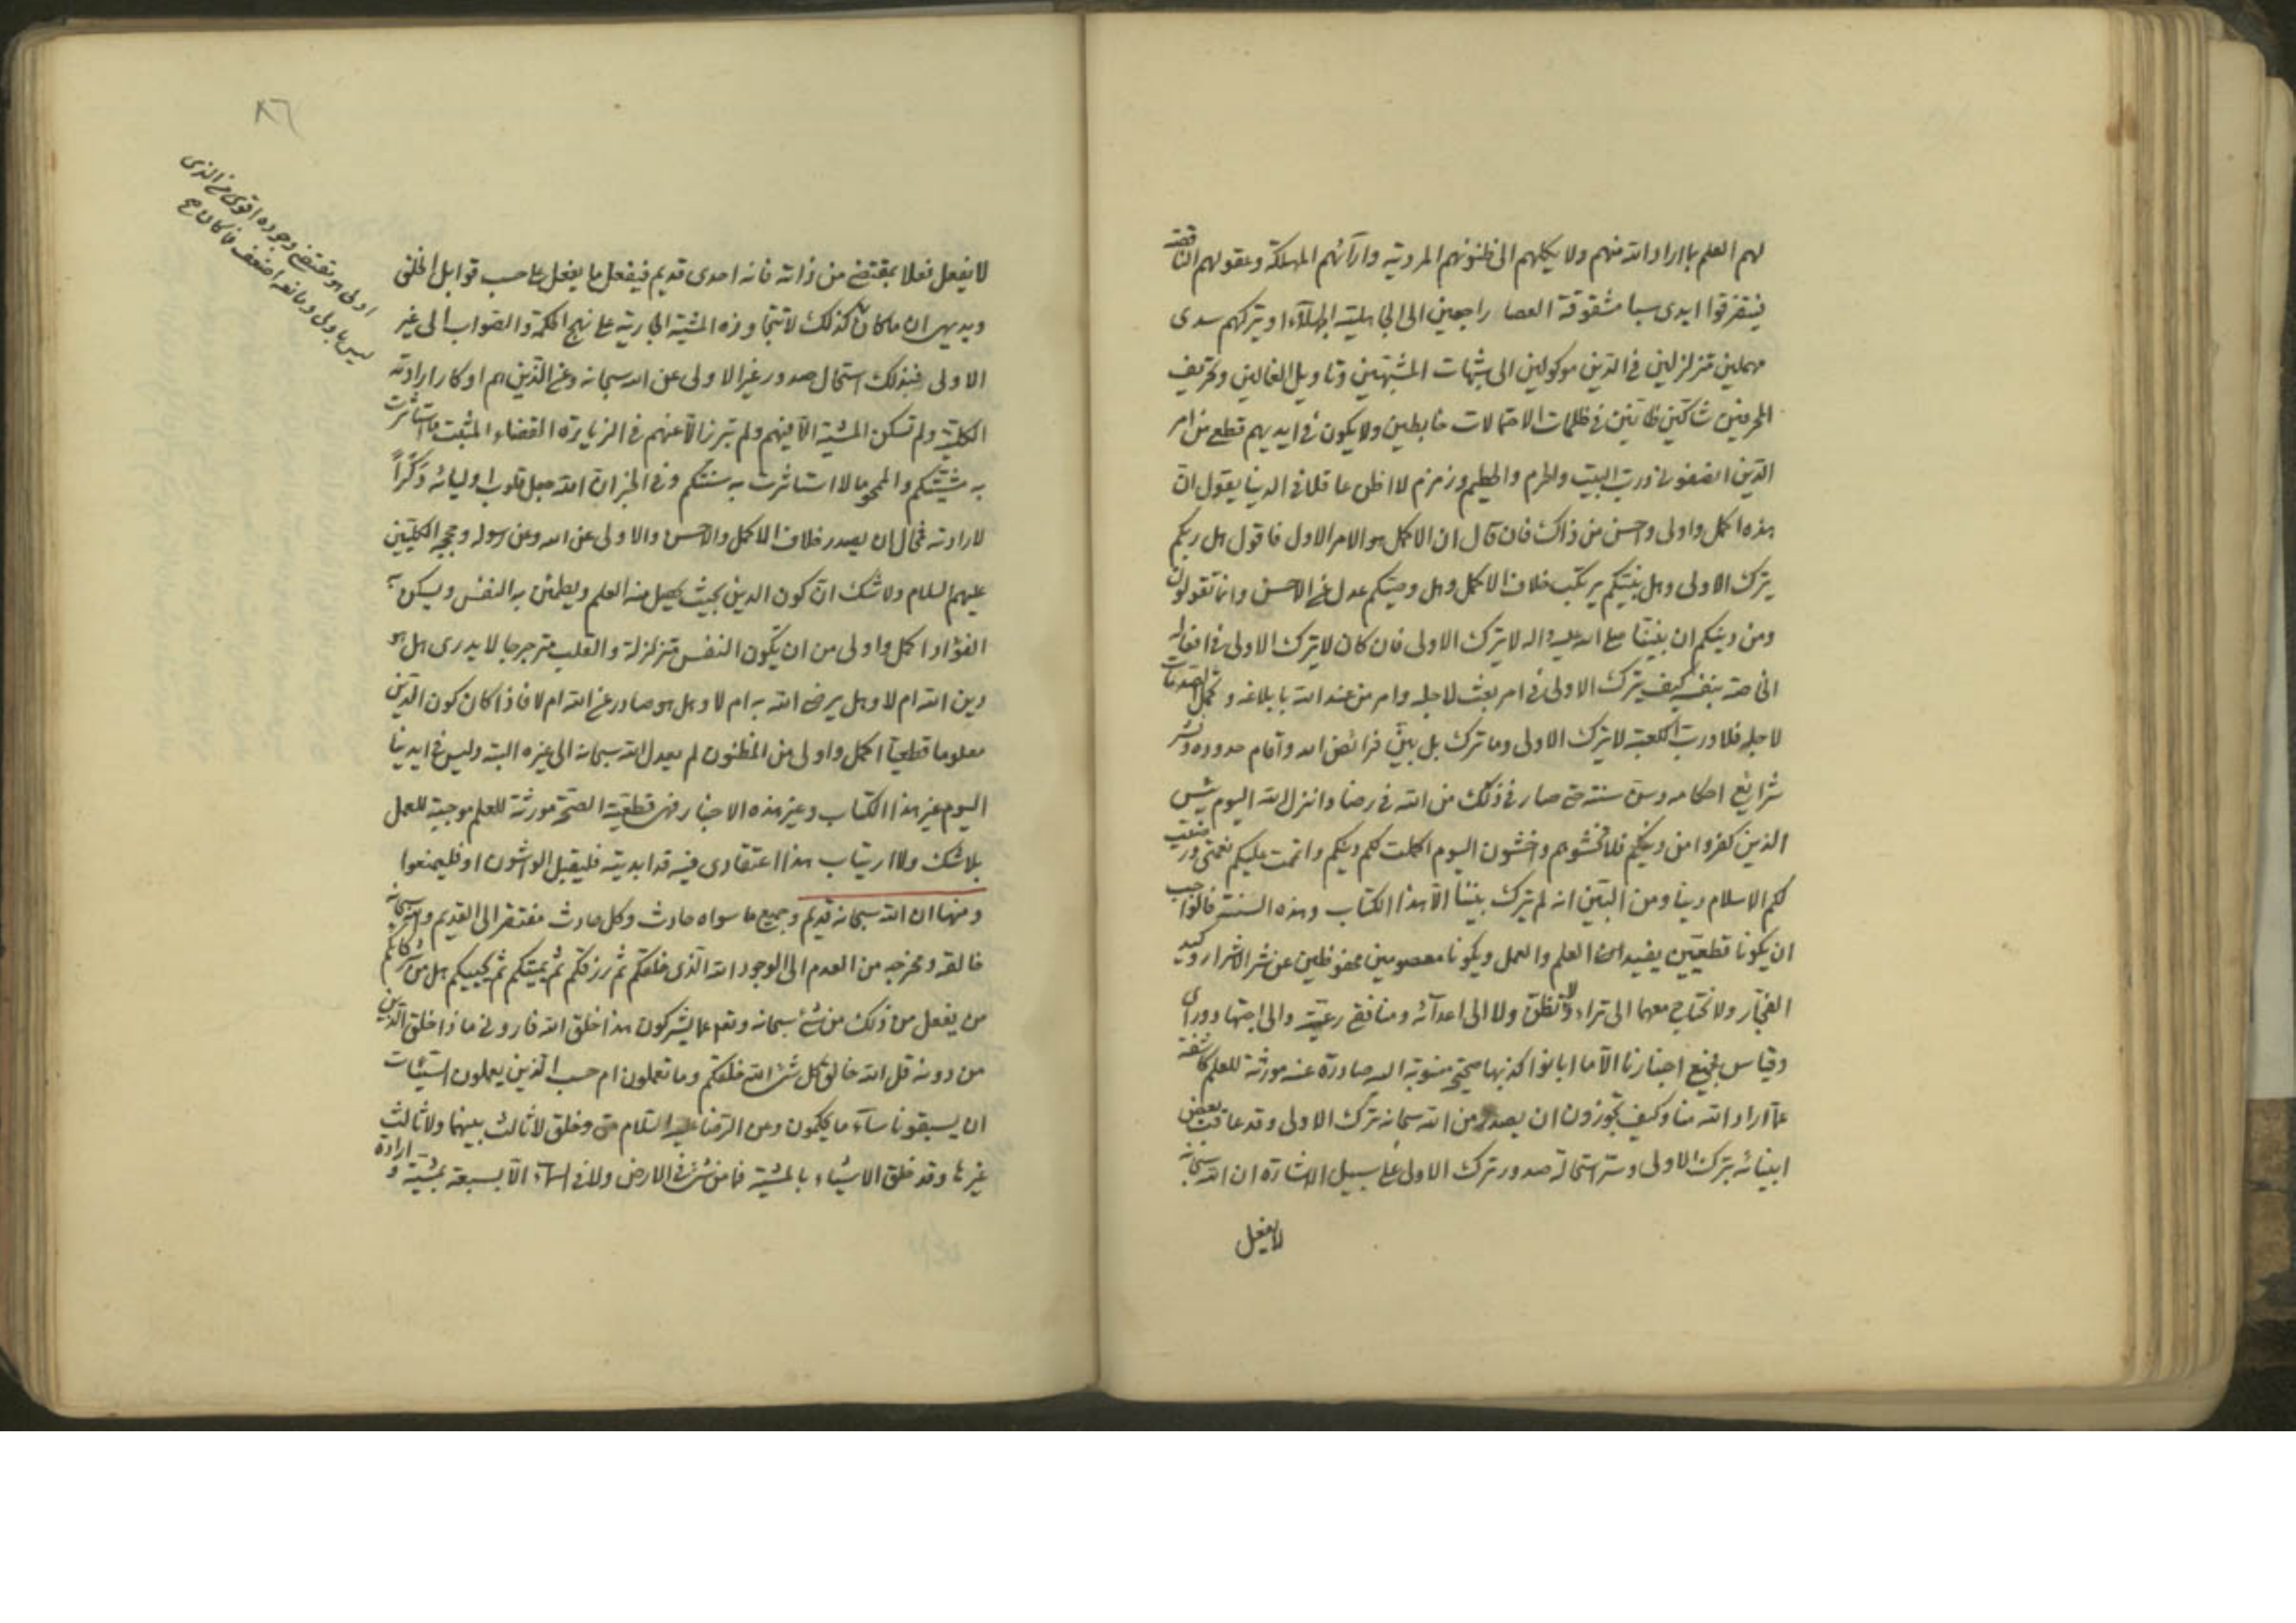 لهم العلم بما اراد الله منهم ولا يكلهم الى ظنونهم المردية وارآئهم المهلكة وعقولهم الناقصة
فيتفرقوا ايدى سبا مشقوقة العصا راجعين الى الجاهلية الجهلآء او يتركهم سدى
مهملين متزلزلين فى الدين موكولين الى شبهات المشبهين وتاويل الغالين وتحريف
المحرفين شاكين ظانين فى ظلمات الاحتمالات خابطين ولا يكون فى ايديهم قطع من امر
الدين انصفونى ورب البيت والحرم والحطيم وزمزم لا اظن عاقلا فى الدنيا يقول ان
هذه اكمل واولى واحسن من ذاك فان قال ان الاكمل هو الامر الاول فاقول هل ربكم
يترك الاولى وهل نبيكم يرتكب خلاف الاكمل وهل وصيكم عدل عن الاحسن وانما تقولون
ومن دينكم ان نبينا صلى الله عليه واله لا يترك الاولى فان كان لا يترك الاولى فى افعاله
الخاصة بنفسه كيف يترك الاولى فى امر بعث لاجله وامر من عند الله بابلاغه وتحمل الصدمات
لاجله فلا ورب الكعبة لا يترك الاولى وما ترك بل بين فرائض الله واقام حدوده ونشر
شرايع احكامه وسن سننه حتى صار فى ذلك من الله فى رضا وانزل الله اليوم يئس
الذين كفروا من دينكم فلا تخشوهم واخشون اليوم اكملت لكم دينكم واتممت عليكم نعمتى ورضيت
لكم الاسلام دينا ومن البين انه لم يترك بيننا الا هذا الكتاب وهذه السنة فالواجب
ان يكونا قطعيين يفيدان العلم والعمل ويكونا معصومين محفوظين عن شر الاشرار وكيد
الفجار ولا نحتاج معهما الى تراء ولا تظن ولا الى اعدآئه ومنافقى رعيته والى اجتهاد وراى
وقياس فجميع اخبارنا الا ما ابانوا كذبها صحيحة منسوبة اليه صادرة عنه مورثة للعلم كاشفة
عما اراد الله منا وكيف تجوزون ان يصدر من الله سبحانه ترك الاولى وقد عاقب بعض
انبيائه بترك الاولى وسر استحالة صدور ترك الاولى على سبيل الاشارة ان الله سبحانه
لا يفعل
٨٦
اولى هو مقتضى وجوده اقوى من الذى
ليس باولى ومانعه اضعف فاكان ح
لا يفعل فعلا بمقتضى من ذاته فانه احدى قديم فيفعل ما يفعل على حسب قوابل الخلق
وبديهى ان ما كان كذلك لا تتجاوزه المشية الجارية على نهج الحكمة والصواب الى غير
الاولى فبذلك استحال صدور غير الاولى عن الله سبحانه وعن الذين هم اوكار ارادته
الكلية ولم تسكن المشية الا فيهم ولم تبرز الا عنهم فى الزيارة القضاء المثبت ما استاثرت
به مشيتكم والممحو ما لا استاثرت به سنتكم وفى الخبر ان الله جعل قلوب اوليائه وكراً
لارادته فمحال ان يصدر خلاف الاكمل والاحسن والاولى عن الله وعن رسوله وحججه الكليين
عليهم السلام ولا شك ان كون الدين بحيث يحصل منه العلم ويطمئن به النفس ويسكن به
الفؤاد اكمل واولى من ان يكون النفس متزلزلة والقلب مترجرجا لا يدرى هل هو
دين الله ام لا وهل يرضى الله به ام لا وهل هو صادر عن الله ام لا فاذا كان كون الدين
معلوما قطعيا اكمل واولى من المظنون لم يعدل الله سبحانه الى غيره البتة وليس فى ايدينا
اليوم غير هذا الكتاب وغير هذه الاخبار فهى قطعية الصحة مورثة للعلم موجبة للعمل
بلا شك ولا ارتياب هذا اعتقادى فيه قد ابديته فليقبل الواشون او فليمنعوا
ومنها ان الله سبحانه قديم وجميع ما سواه حادث وكل حادث مفتقر الى القديم وانه سبحانه
خالقه ومخرجه من العدم الى الوجود الله الذى خلقكم ثم رزقكم ثم يميتكم ثم يحييكم هل من شركائكم
من يفعل من ذلك من شئ سبحانه وتعالى عما يشركون هذا خلق الله فارونى ماذا خلق الذين
من دونه قل الله خالق كل شئ الله خلقكم وما تعملون ام حسب الذين يعملون السيئات
ان يسبقونا سآء ما يحكمون وعن الرضا عليه السلام حق وخلق لا ثالث بينهما ولا ثالث
غيرهما وقد خلق الاشياء بالمشية فما من شئ فى الارض ولا فى السماء الا بسبعة بمشية وارادة